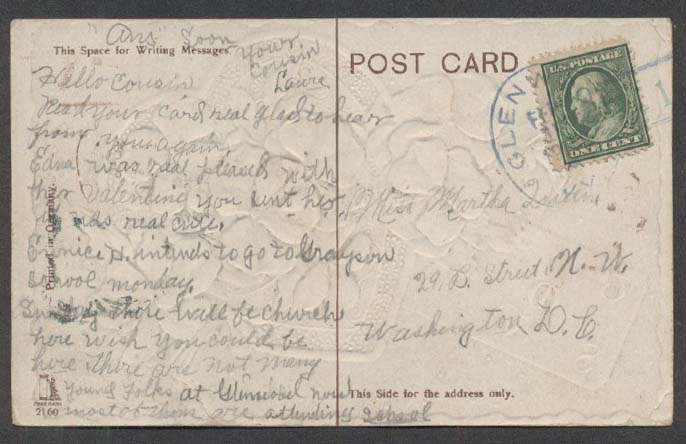 "Ans" Soon
your
Cousin
Laura
This Space for Writing Messages
POST CARD
Hello Cousin
Recd your card real glad to hear
from you again.
Edna was real pleased with
her Valentine you sent her
it was real cute.
Eunice H. intends to go to Grayson
school monday.
Sunday there will be church
here wish you could be
here. there are not many
young folks at Glenwood now
most of them are attending school
Printed in Germany.
2160
GLENW
U.S. POSTAGE
ONE CENT
Miss Martha
29. B. Street. N.W.
Washington D.C.
This Side for the address only.